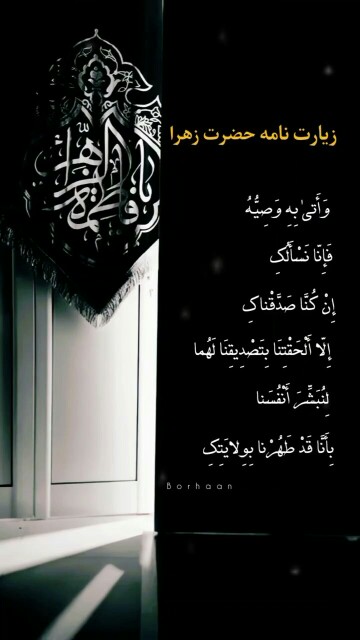 یا فاطمة الزهراء
زیارت نامه حضرت زهرا
وَأَتیٰ بِهِ وَصِیُّهُ
فَإِنّا نَسْأَلُکِ
إِنْ کُنَّا صَدَّقْناکِ
إِلّا أَلْحَقْتِنَا بِتَصْدِیقِنَا لَهُما
لِنُبَشِّرَ أَنْفُسَنا
بِأَنَّا قَدْ طَهُرْنا بِوِلایَتِکِ
Borhaan